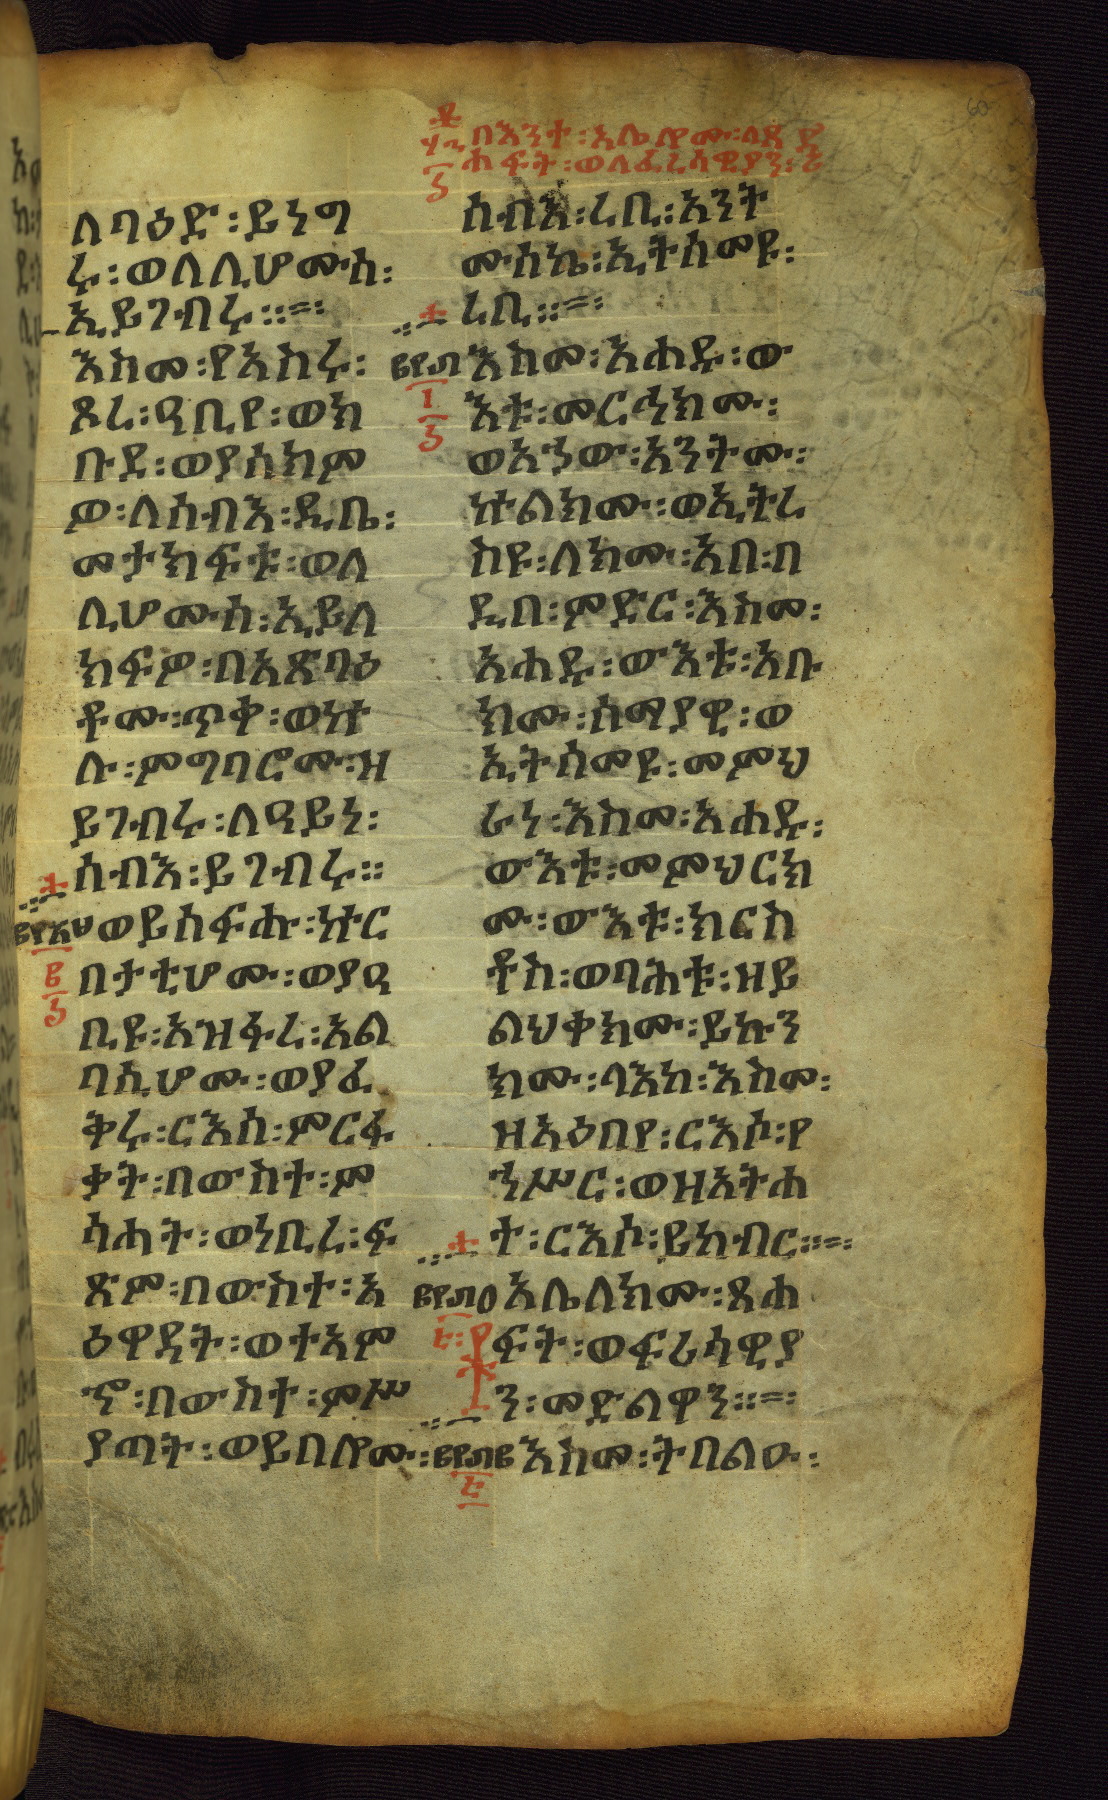 በእንተ፡እሌ፡ሎሙ፡ለጸ
ሐፍት፡ወለፈሪሳዊያን፡
ለባዕድ፡ይነግ
ሩ፡ወለሊሆሙሰ፡
ኢይገብሩ።
እስመ፡የአስሩ፡
ጾረ፡ዓቢየ፡ወክ
ቡደ፡ወያሰክም
ዎ፡ለሰብእ፡ዲቤ፡
መታክፍቱ፡ወለ
ሊሆሙሰ፡ኢይለ
ክፍዎ፡በአጽባዕ
ቶሙ፡ጥቀ፡ወኵ
ሉ፡ምግባሮሙ፡ዘ
ይገብሩ፡ለዓይነ፡
ሰብእ፡ይገብሩ።
ወይሰፍሑ፡ኵር
በታቲሆሙ፡ወያዓ
ቢዩ፡አዝፋረ፡አል
ባሲሆሙ፡ወያፈ
ቅሩ፡ርእሰ፡ምርፋ
ቃት፡በውስተ፡ም
ሳሐት፡ወነቢረ፡ፍ
ጽም፡በውስተ፡አ
ዕዋዳት፡ወተአም
ኆ፡በውስተ፡ምሥ
ያጣት፡ወይበሎሙ፡
ሰብእ፡ረቢ፡አንት
ሙሰኬ፡ኢትሰመዩ፡
ረቢ።
እስመ፡አሐዱ፡ው
እቱ፡መርሒክሙ፡
ወአኀው፡አንትሙ፡
ኵልክሙ፡ወኢትረ
ስዩ፡ለክሙ፡አበ፡በ
ዲበ፡ምድር፡እስመ፡
አሐዱ፡ውእቱ፡አቡ
ክሙ፡ሰማያዊ፡ወ
ኢትሰመዩ፡መምህ
ራነ፡እስመ፡አሐዱ፡
ውእቱ፡መምህርክ
ሙ፡ውእቱ፡ክርስ
ቶስ፡ወባሕቱ፡ዘይ
ልህቀክሙ፡ይኩን
ክሙ፡ላእከ፡እስመ፡
ዘአዕበየ፡ርእሶ፡የ
ኀሥር፡ወዘአትሐ
ተ፡ርእሶ፡ይከብር።
እሌለክሙ፡ጸሐ
ፍት፡ወፍሪሳዊያ
ን፡መድልዋን።
እስመ፡ትበልዑ፡